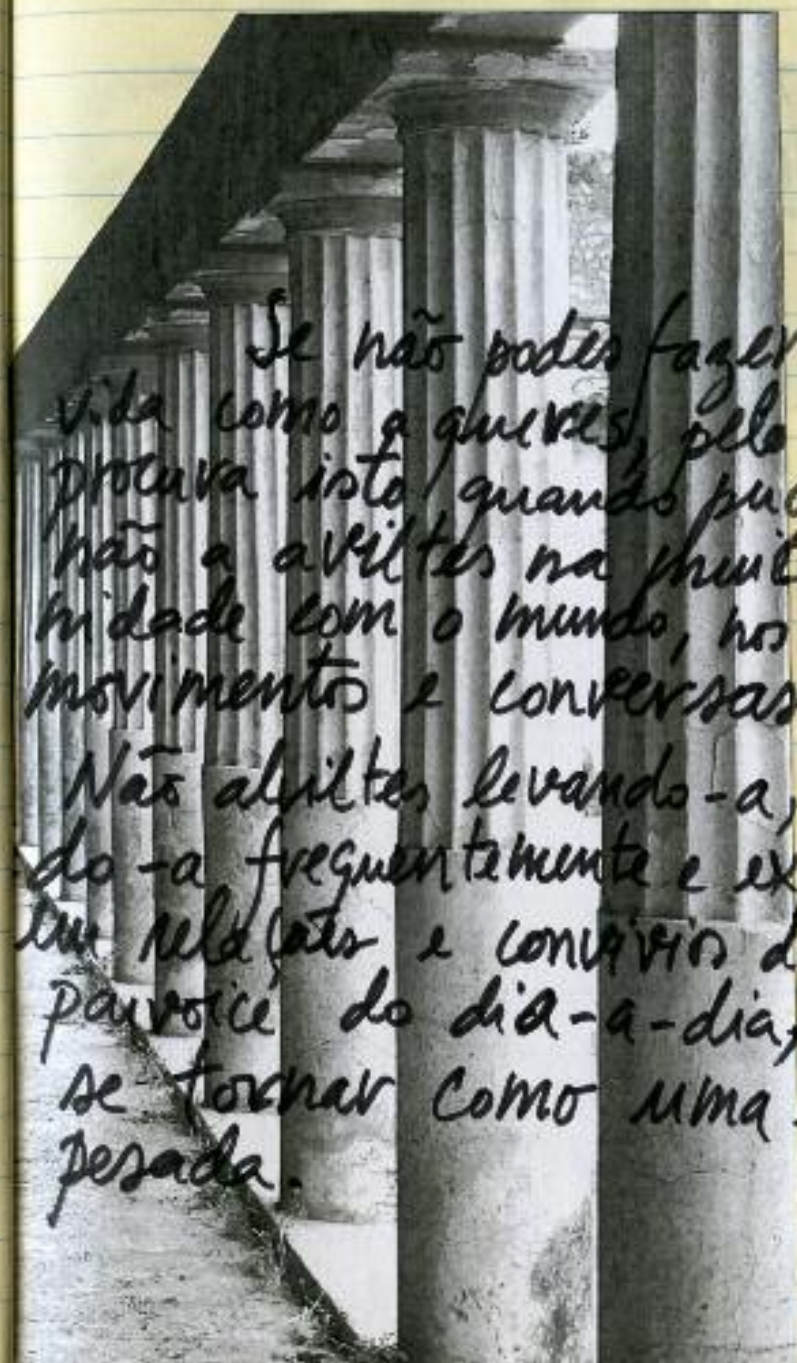 Se não podes fazer
vida como a queres, pelo
procura isto quando pud
não a aviltes na muit
midade com o mundo, nos
movimentos e conversas
Não aviltes levando-a,
do-a frequentemente e ex
em relações e convívios d
parvoíce do dia-a-dia,
se tornar como uma
pesada.